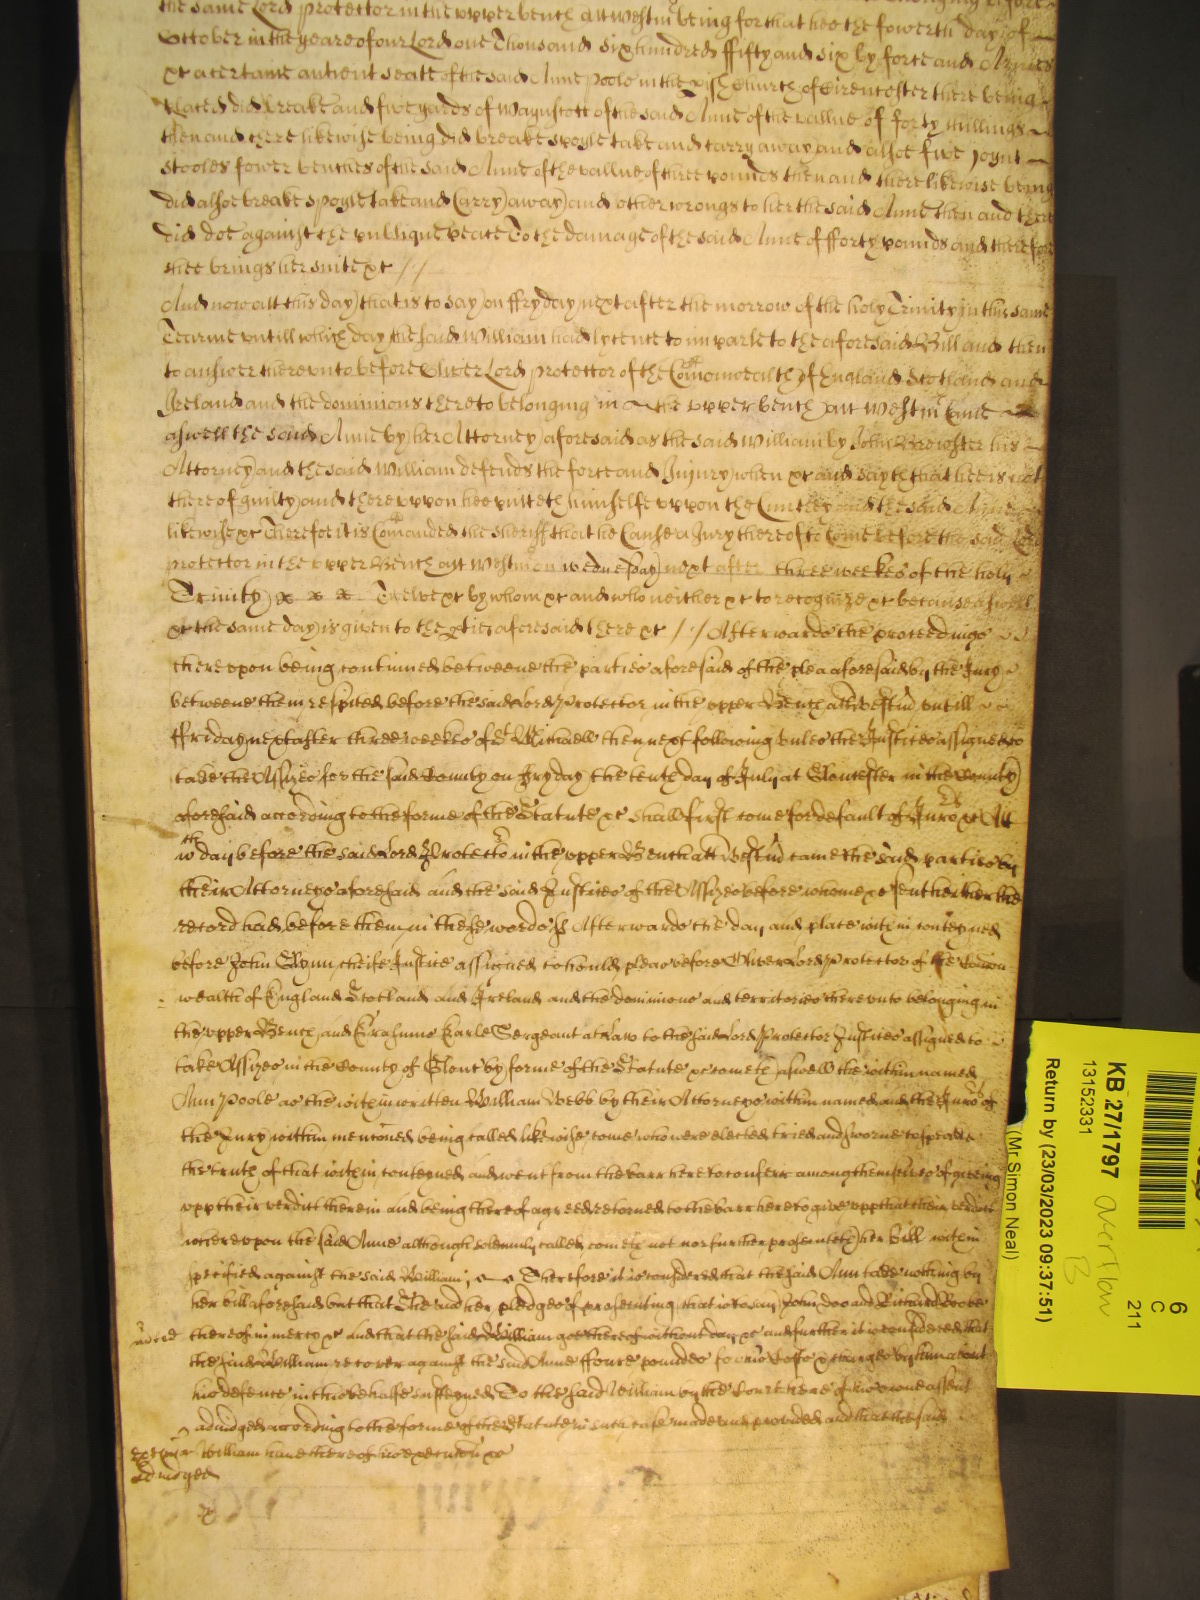 the same Lord Protector in the upper bench att Westm being for that hee the fowerth day of
October in the yeare of our Lord one Thousand Six hundred ffifty and six by force and Armes
xc a certaine antient seate of the said Anne Poole in the pish Church of Cirencester there being
placed did breake and five yards of Waynscott of the said Anne of the vallue of forty shillings
then and there likewise being did breake spoyle take and carry away and alsoe five joynt
stooles fower benches of the said Anne of the vallue of three pounds then and there likewise being
did alsoe breake spoyle take and carry away and other wrongs to her the said Anne then and there
did doe against the publique peace To the damage of the said Anne of fforty pounds and therefore
shee brings her suite xc //
And now att this day that is to say on ffryday next after the morrow of the holy Trinity in this same
Tearme untill which day the said William had lycence to imparle to the aforesaid Bill and then
to answer thereunto before Oliver Lord Protector of the Comonwealth of England Scotland and
Ireland and the dominions thereto belonging in the upper bench att Westm came
aswell the said Anne by her Attorney aforesaid as the said William by John Brewster his
Attorney and the said William defends the force and Injury when xc and sayth that hee is not
thereof guilty and thereupon hee putteth himselfe uppon the Cuntrey and the said Anne
likewise xc Therefore it is Comanded the Sheriff that he Cause a Jury thereof to Come before the said Lord
Protector in the upper Bench att Westm on wednesday next after three weekes of the holy
Trinity x x x Twelve xc by whom xc and who neither xc to recognize xc because aswell
xc the same day is given to the pties aforesaid there xc // Afterwards the proceedings
thereupon being continued betweene the parties aforesaid of the plea aforesaid by the Jury
betweene them respited before the said Lord Protector in the upper Bench att Westm untill
ffriday next after three weekes of St Michaell then next following unles the Justices assigned to
take the Assizes for the said County on Fryday the tenth day of July at Gloucester in the County
aforesaid according to the forme of the Statute xc shall first come for default of Jurors xc Att
wth day before the said Lord Protector in the upper Bench att Westm came the said parties by
their Attorneys aforesaid and the said Justices of the Assizes before whome xc sent hither their
record had before them in these words ss Afterwards the day and place within conteyned
before John Glynn cheife Justice assigned to hould pleas before Oliver Lord Protector of the Comon
wealth of England Scotland and Ireland and the dominions and territories thereunto belonging in
the upper Bench and Erasmus Earle Sergeant at Law to the said Lord Protector Justices assigned to
take Assizes in the County of Glouc by forme of the Statute xc cometh aswell the within named
Ann Poole as the within written William Webb by their Attorneys within named and the Jurors of
the Jury within mentioned being called likewise come who were elected tried and sworne to speake
the truth of that within conteyned and went from the barr here to conferr among themselves of giveing
upp their verdict therein and being thereof agreed retorned to the barr here to give upp that their verdict
whereupon the said Anne although solemnly called cometh not nor further prosecuteth her bill within
specified against the said William; Therefore it is considered that the said Ann take nothing by
her bill aforesaid but that She and her pledges of prosecuting that is to say John Doo and Richard Roo be
thereof in mercy xc and that the said William goe thereof without day xc and further it is considered that
the said William recover against the said Anne ffoure poundes for his Costs & charges by him about
his defence in this behalfe susteyned To the said William by the Court here of his owne assent
adiudged according to the forme of the Statute in such case made and provided and that the said
William have thereof his execution xc
KB 27/1797
13152331
Return by (23/03/2023 09:37:51)
(Mr Simon Neal)
overflow
B
6
C
211